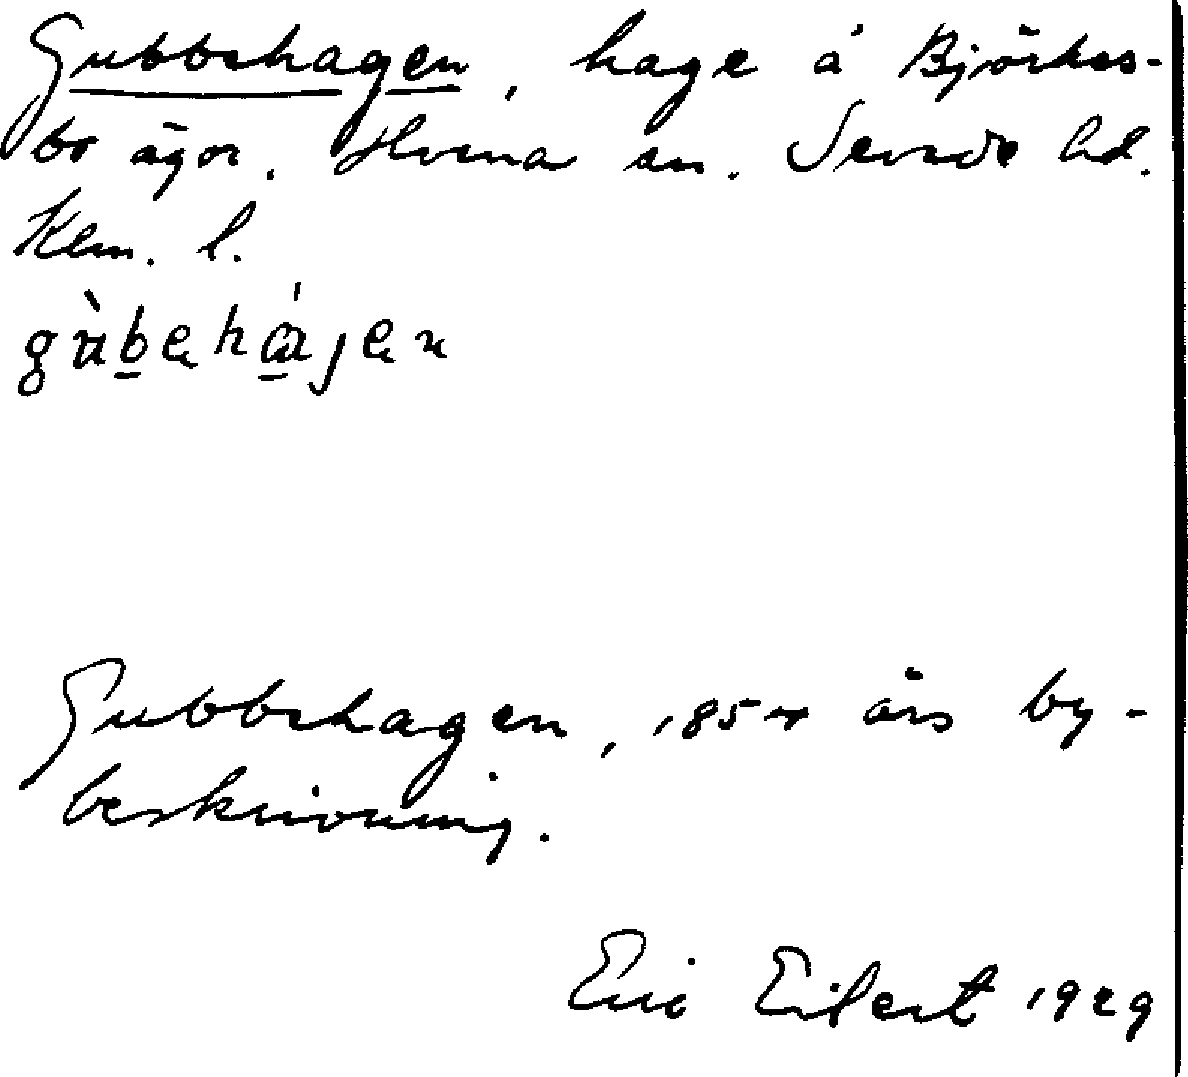 Gubbshagen, hage å Björkes-
bo ägor. Hvena sn. Sevede hd.
Kem. l.
gùbehájen
Gubbshagen, 1854 års by-
beskrivning.
Eric Eilert 1929